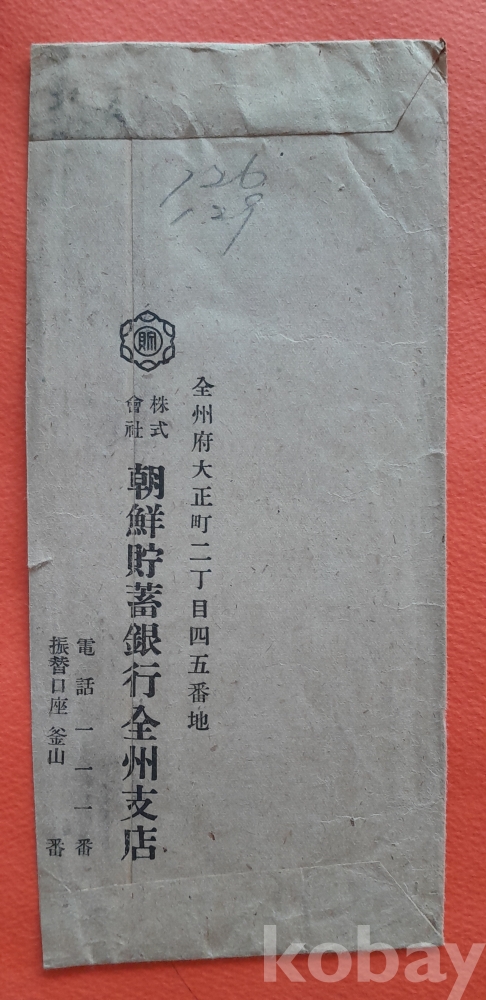 126
129
貯
全州府大正町二丁目四五番地
株式
會社
朝鮮貯蓄銀行全州支店
電話一一一番
振替口座釜山 番
kobay